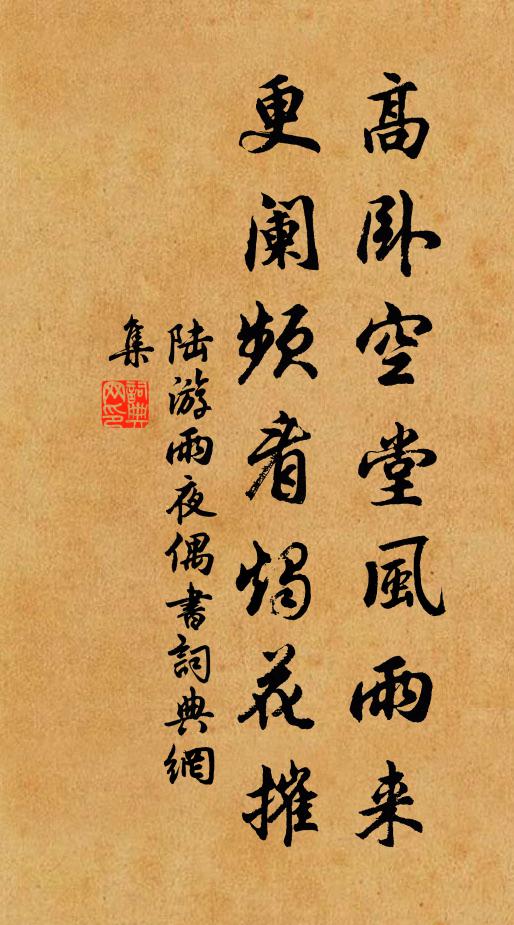 高卧空堂風雨来
更阑频看燭花摧
陆游雨夜偶書詞典網
集
詞典网印